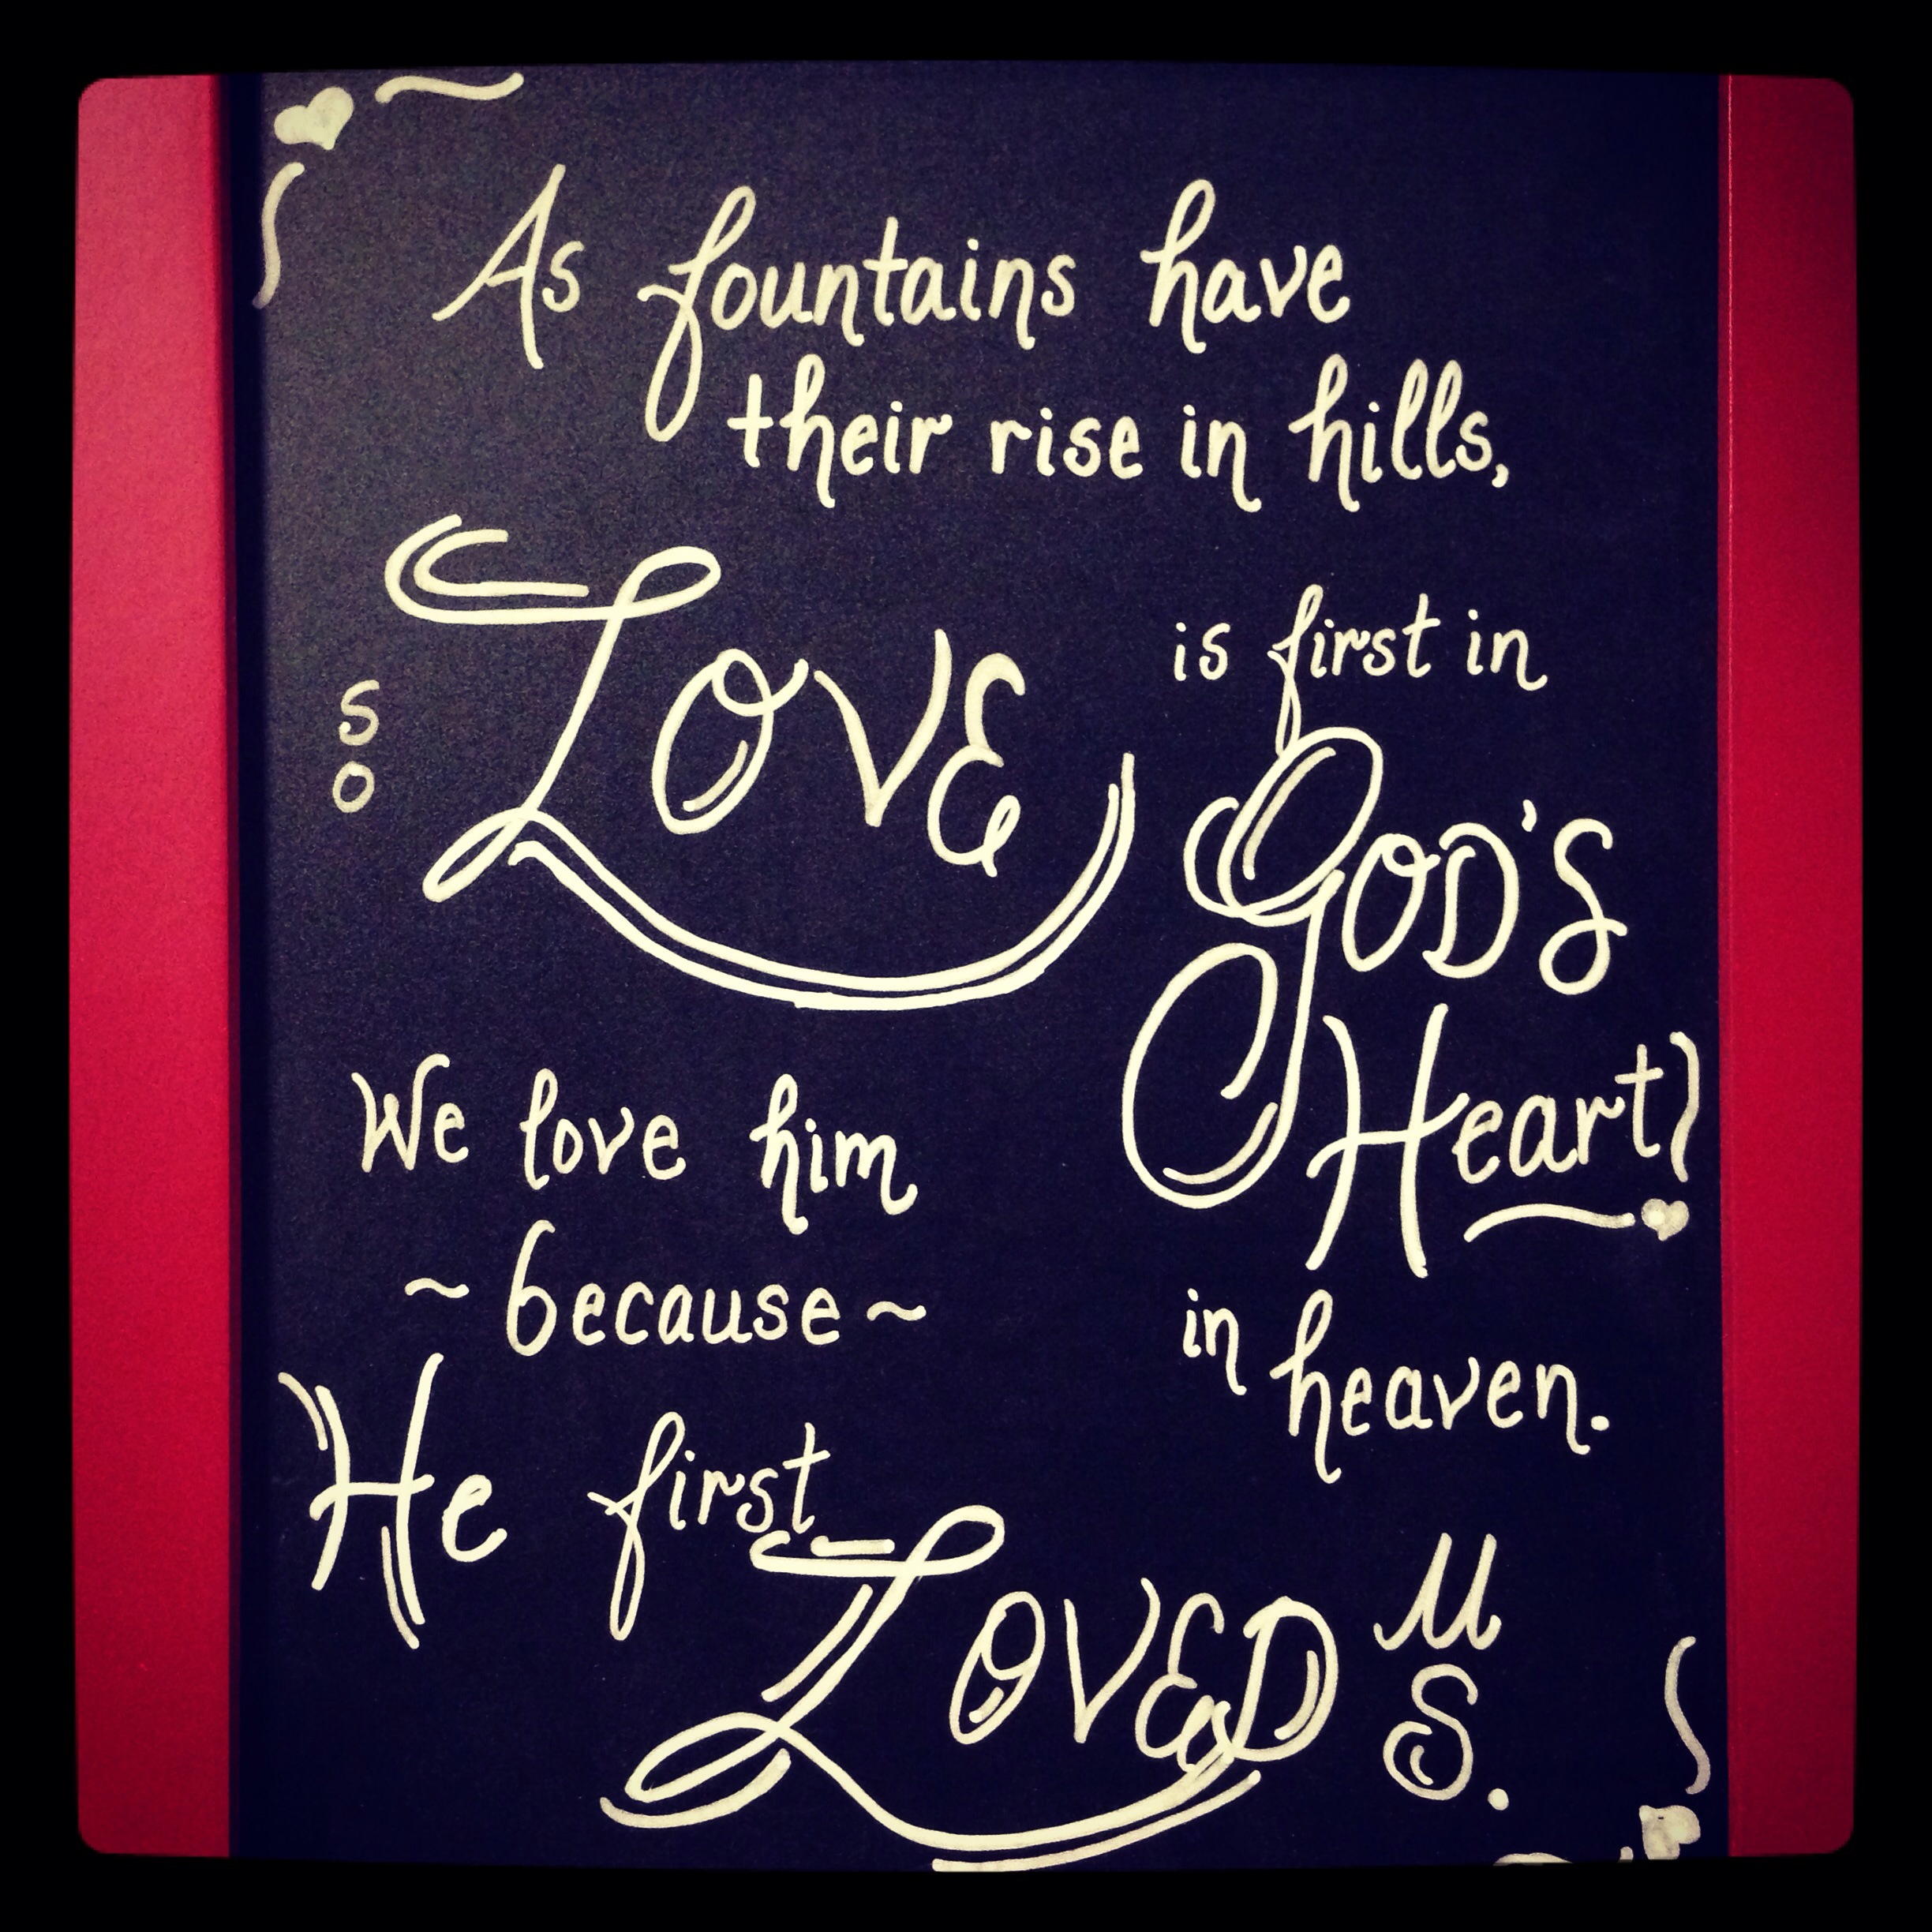 As fountains have
their rise in hills,
so LOVE is first in
GOD'S
Heart
in heaven.
We love him
~ because ~
He first
LOVED US.